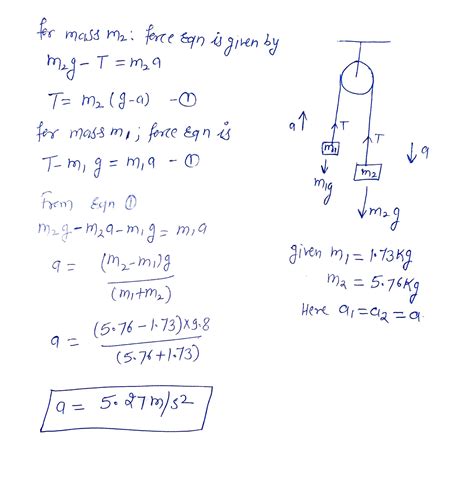 for mass m2: force eqn is given by
m2g - T = m2a
T = m2 (g-a) - ①
for mass m1; force eqn is
T - m1 g = m1a - ①
From Eqn ①
m2g - m2a - m1g = m1a
a = (m2-m1)g / (m1+m2)
a = (5.76 - 1.73)×9.8 / (5.76+1.73)
a = 5.27 m/s2
a↑
T
T
m1
m2
↓a
m1g
m2g
given m1 = 1.73kg
m2 = 5.76kg
Here a1=a2=a